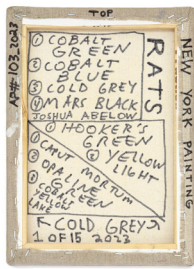 TOP
AP#103_2023
NEW YORK PAINTING
RATS
① COBALT
GREEN
② COBALT
BLUE
③ COLD GREY
④ MARS BLACK
JOSHUA ABELOW
① HOOKER'S
GREEN
② YELLOW
LIGHT
③ CAPUT MORTUM
② OPALINE
GREEN
YELLOW
LAKE
← COLD GREY ↗
1 OF 15 2023